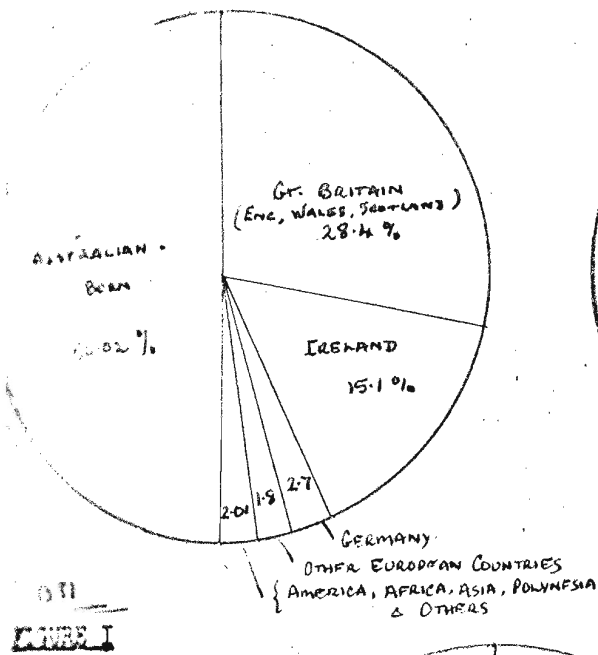 Gt. BRITAIN
(ENG, WALES, SCOTLAND)
28.4 %
AUSTRALIAN -
BORN
%
IRELAND
15.1 %
2.01
1.8
2.7
GERMANY
OTHER EUROPEAN COUNTRIES
{ AMERICA, AFRICA, ASIA, POLYNESIA
& OTHERS
FIGURE I